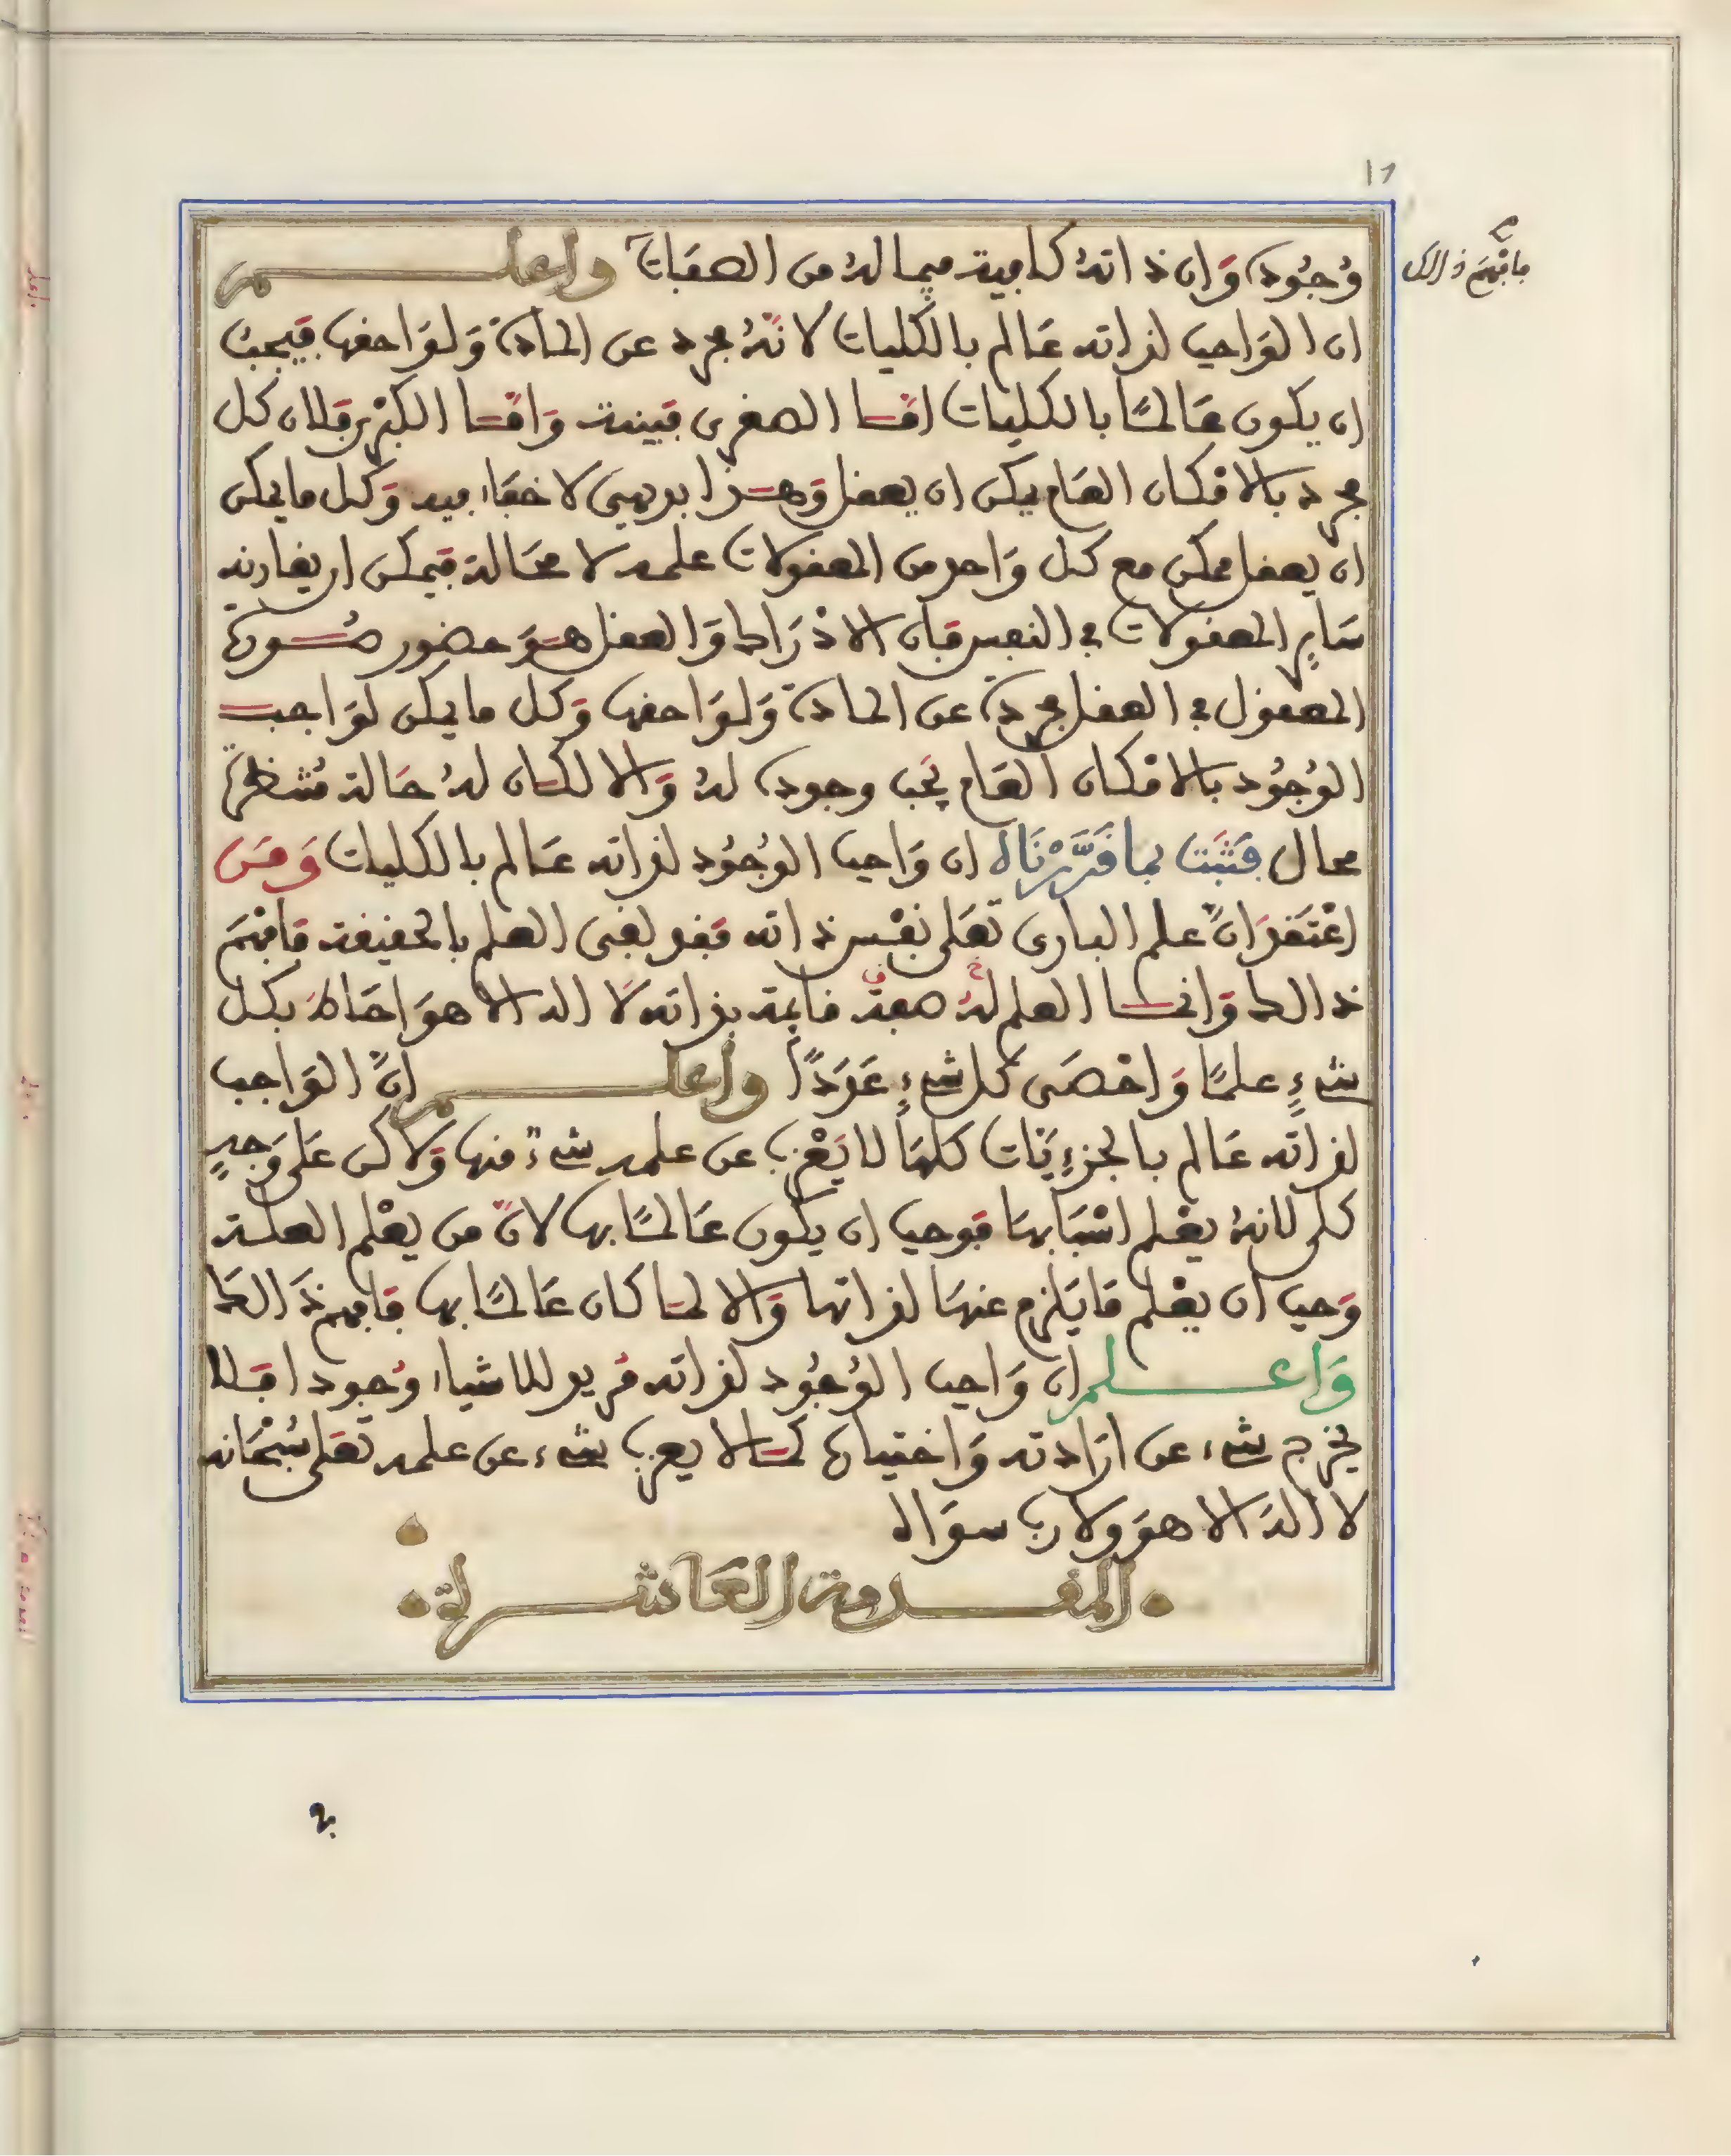 ١٦
فافهم ذالك
وُجُوده وَان ذاتهُ كافية فيما لهُ من الصفات واعلم
ان الوَاجب لذاته عَالم بالكليات لانّهُ مجرد عن المادة وَلوَاحقها فيجبُ
ان يكون عَالمًا بالكليات امّا الصغرى فبينة وَامّا الكبرى فلان كل
مجرد بالامكان العَام يمكن ان يعقل وَهذا بديهي لا خفاء فيه وَكل ما يمكن
ان يعقل يمكن مع كل وَاحد من المعقولات علمه لا محَالة فيمكن ان يقارنه
سَاير المعقولات في النفس فان الادْرَاك وَالعقل هوَ حضور صُورة
المعقول في العقل مجردة عن المادة وَلوَاحقها وَكل ما يمكن لوَاجب
الوُجُود بالامكان العَام يجَب وجوده لهُ وَالا لكان لهُ حَالة مُنتظرة
محال فثبَت بما قَرَّرْنَاه ان وَاجب الوُجُود لذاته عَالم بالكليات وَمَن
اعْتَقدَ انّ علم البارى تعَلى نفْس ذاته فقد نفى العلم بالحقيقة فافهَم
ذالك وَانما العلم لهُ صفة قايمة بذاته لَا اله الا هوَ احَاط بكل
شيءٍ علمًا وَاحْصَى كل شيءٍ عَدَدًا واعلم انّ الوَاجب
لذاته عَالم بالجزءِيَّات كلهَا لا يَعْزب عن علمه شيءٌ منها وَلاكن عَلى وَجهٍ
كلى لانهُ يعْلم اسْبَابهَا فوجب ان يكون عَالمًا بها لانّ من يعْلم العلة
وَجب ان يعْلم مَا يَلزم عنهَا لذاتها وَالا لما كان عَالمًا بها فافهم ذَالك
وَاعلم ان وَاجب الوُجُود لذاته مُريد للاشياء وُجودا فلا
يخرج شيء عن ارَادته وَاختياره كما لا يعزب شيء عن علمه تعَلى سُبْحَانه
لا الهَ الا هوَ ولا رب سوَاه
المقدمة العَاشرة